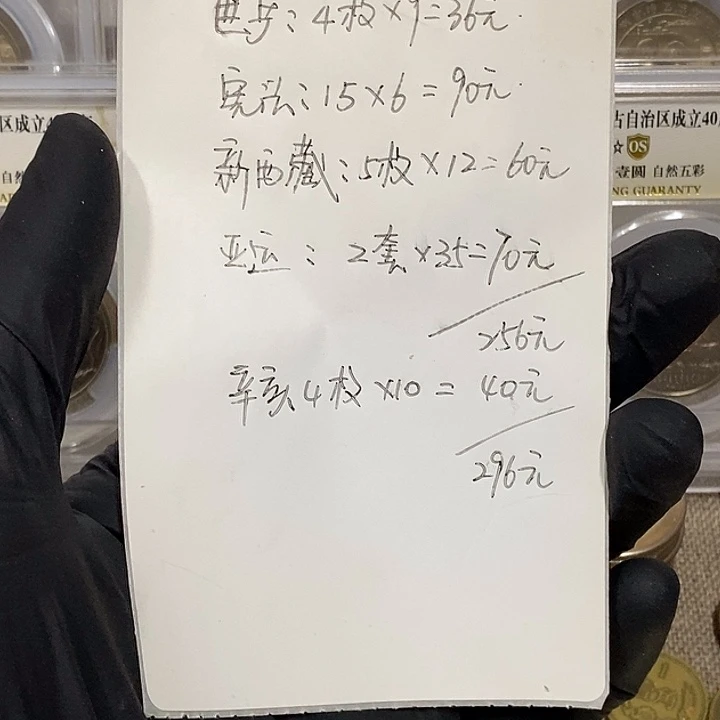 4枚×9=36元.
宪法:15×6=90元.
新西藏:5枚×12=60元
亚运:2套×35=70元
256元
辛亥4枚×10=40元
296元
区成立4
自然
古自治区成立40
☆ OS
壹圆 自然五彩
NG GUARANTY